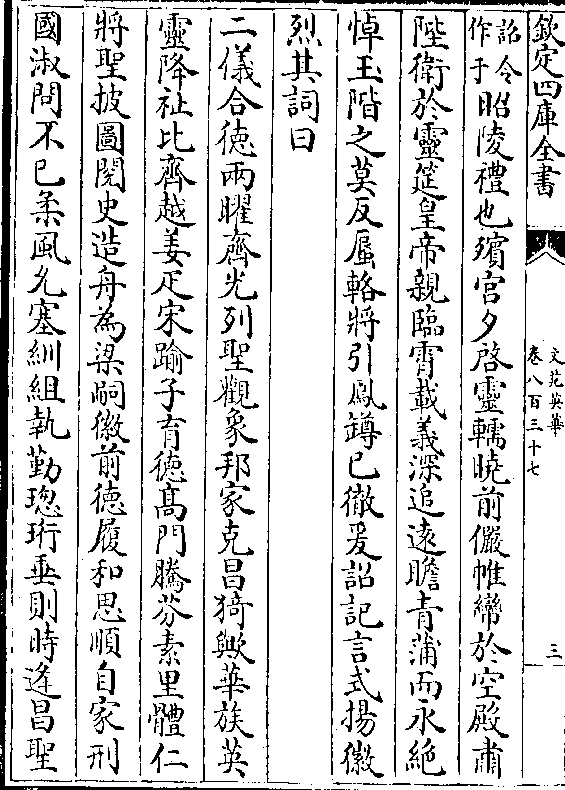 欽定四庫全書
文苑英華
卷八百三十七
三
詔令
作于
昭陵禮也殯宮夕啓靈轜曉前儼帷巒於空殿肅
陛衛於靈筵皇帝親臨宵載義深追逺瞻青蒲而永絶
悼玉階之莫反蜃輅將引鳳罇已徹爰詔記言式揚徽
烈其詞曰
二儀合徳兩曜齊光列聖觀象邦家克昌猗歟華族英
靈降祉比齊越姜疋宋踰子育徳髙門騰芬素里體仁
將聖披圖閱史造舟為梁嗣徽前徳履和思順自家刑
國淑問不已柔風允塞紃組執勤璁珩垂則時逢昌聖